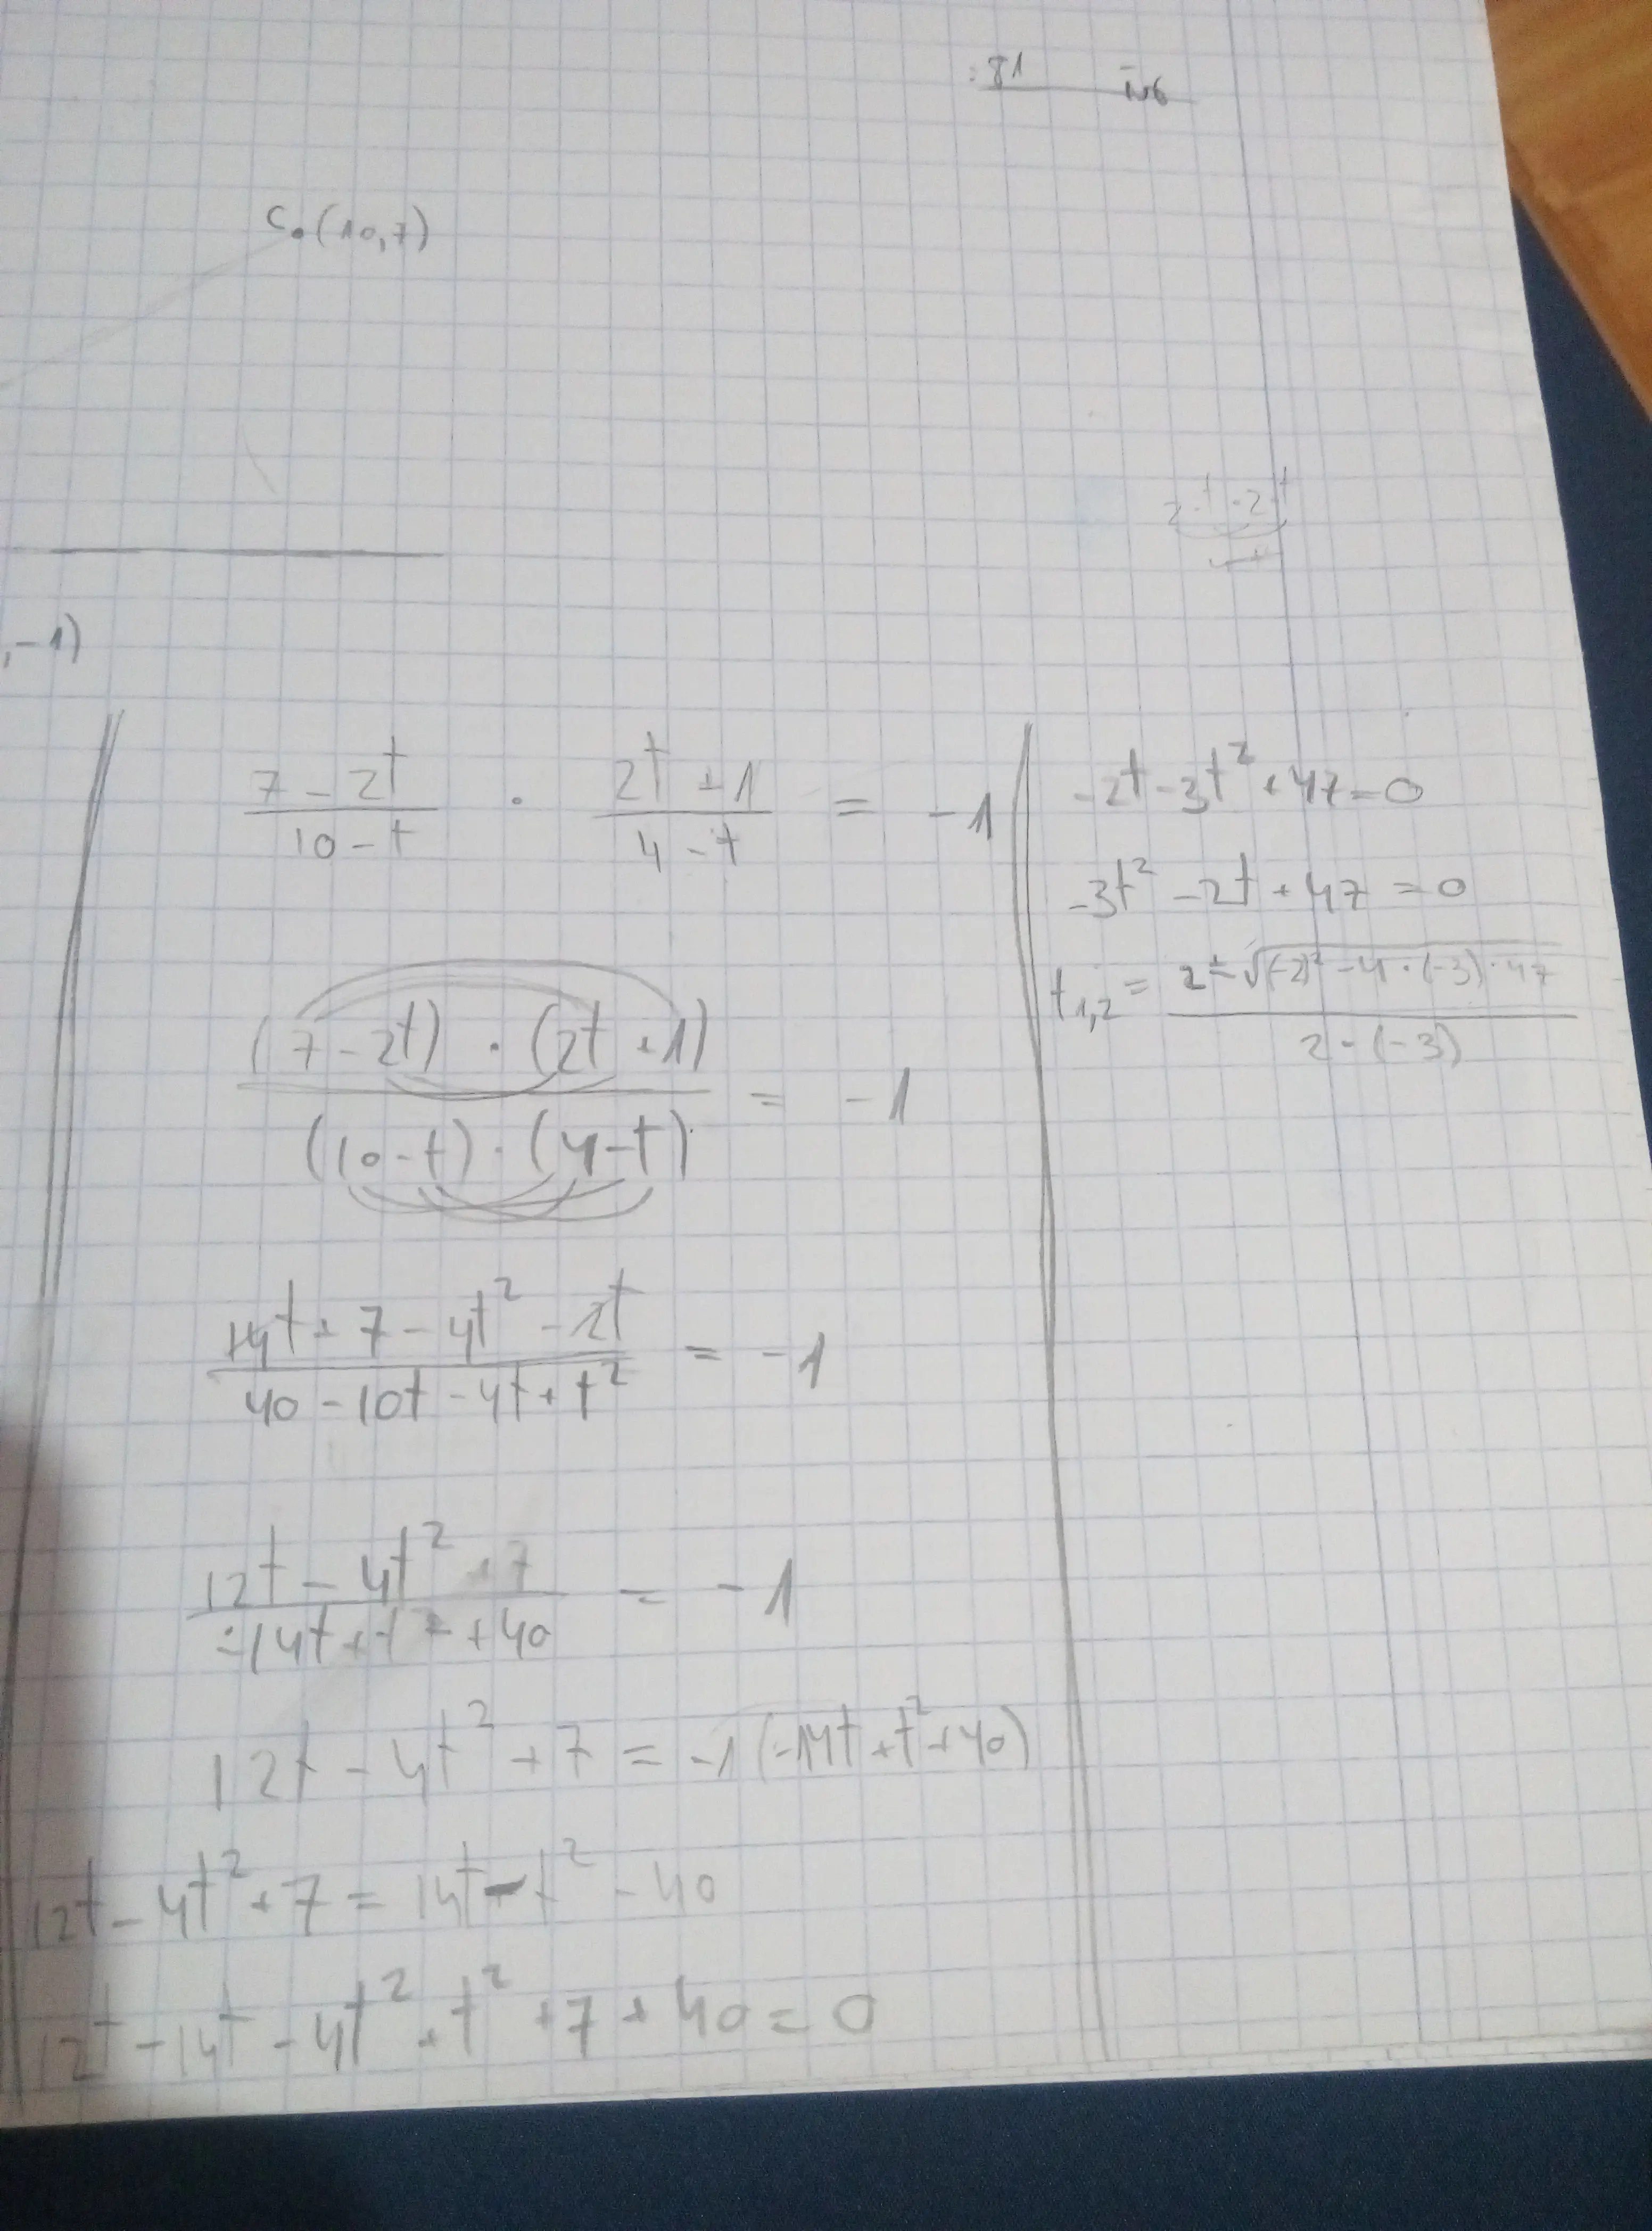 : 81 N6
C. (10,7)
2t-2t
, -1)
\frac{7-2t}{10-t} \cdot \frac{2t+1}{4-t} = -1
\frac{(7-2t) \cdot (2t+1)}{(10-t) \cdot (4-t)} = -1
\frac{14t+7-4t^2-2t}{40-10t-4t+t^2} = -1
\frac{12t-4t^2+7}{-14t+t^2+40} = -1
12t-4t^2+7 = -1(-14t+t^2+40)
12t-4t^2+7 = 14t-t^2-40
12t-14t-4t^2+t^2+7+40=0
-2t-3t^2+47=0
-3t^2-2t+47=0
t_{1,2} = \frac{2 \pm \sqrt{(-2)^2-4\cdot(-3)\cdot47}}{2\cdot(-3)}